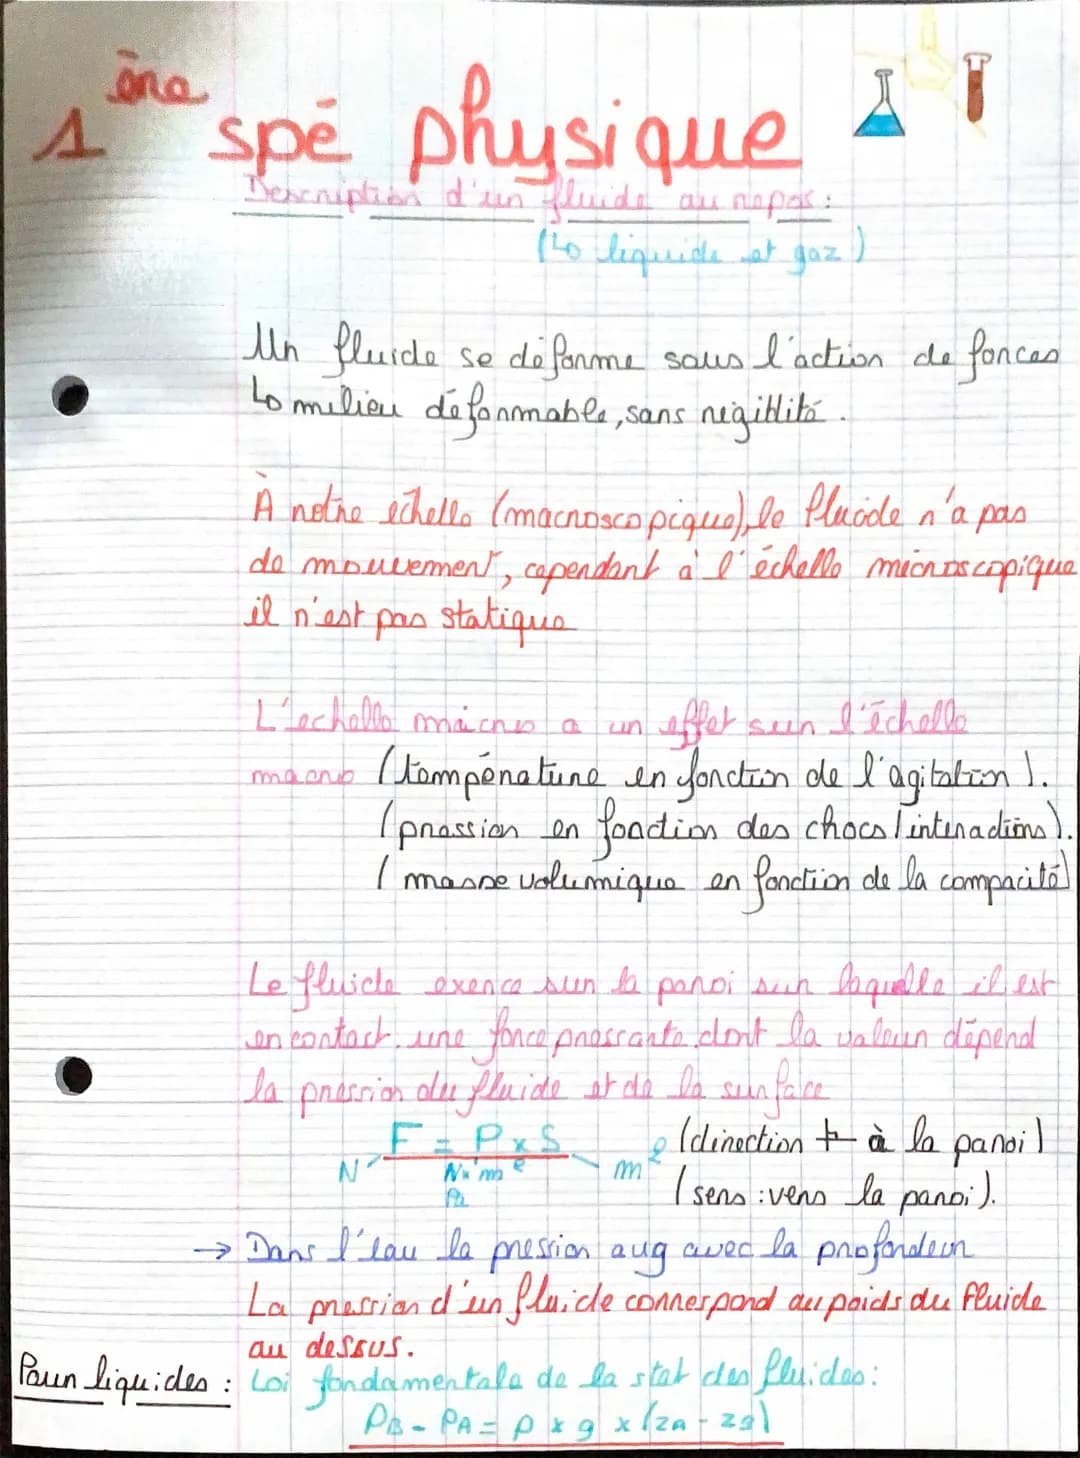 1 ère
spé physique
Description d'un fluide au repos :
(↳ liquide et gaz)
Un fluide se déforme sous l'action de forces
↳ milieu déformable, sans rigiblité.
À notre échelle (macroscopique), le fluide n'a pas
de mouvement, cependant à l'échelle microscopique
il n'est pas statique
L'echelle micro a un effet sur l'échelle
macro (température en fonction de l'agitation).
(pression en fonction des chocs / interactions).
(masse volumique en fonction de la compacité)
Le fluide exerce sur la paroi sur laquelle il est
en contact une force pressante dont la valeur dépend
la pression du fluide et de la surface
F = P x S (direction ⊥ à la paroi)
N N x m² m² (sens : vers la paroi).
Pa
→ Dans l'eau la pression aug avec la profondeur
La pression d'un fluide correspond au poids du fluide
au dessus.
Pour liquides : Loi fondamentale de la stat des fluides :
PB - PA = ρ x g x (zA - zB)